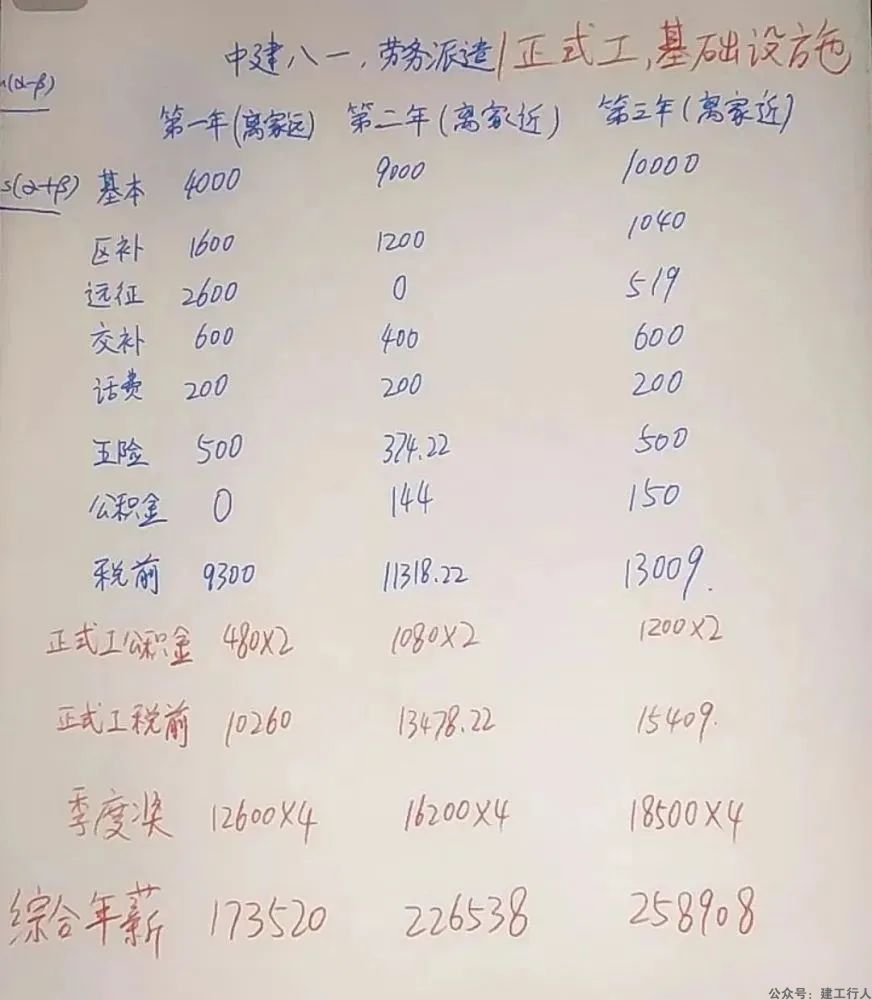 中建八一,劳务派遣/正式工,基础设施
(α-β)
第一年(离家远) 第二年(离家近) 第三年(离家近)
s(α+β)
基本 4000 9000 10000
区补 1600 1200 1040
远征 2600 0 519
交补 600 400 600
话费 200 200 200
五险 500 374.22 500
公积金 0 144 150
税前 9300 11318.22 13009.
正式工公积金 480×2 1080×2 1200×2
正式工税前 10260 13478.22 15409.
季度奖 12600×4 16200×4 18500×4
综合年薪 173520 226538 258908
公众号:建工行人